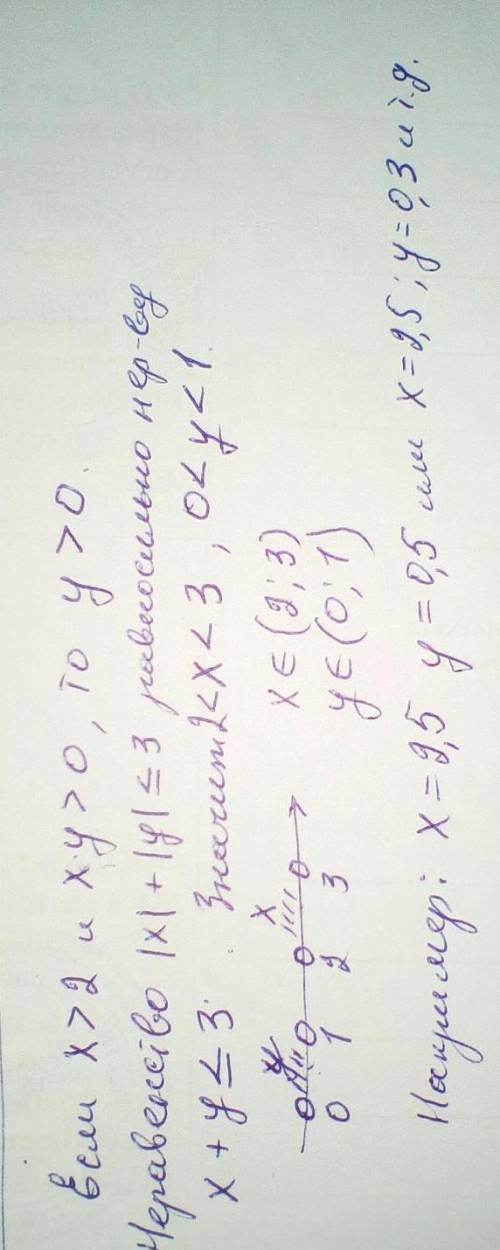 Если x>2 и x·y>0, то y>0.
Неравенство |x|+|y|≤3 равносильно нер-ву
x+y≤3. Значит 2<x<3, 0<y<1.
y x
0 1 2 3
x∈(2;3)
y∈(0;1)
Например: x=2,5 y=0,5 или x=2,5; y=0,3 и т.д.